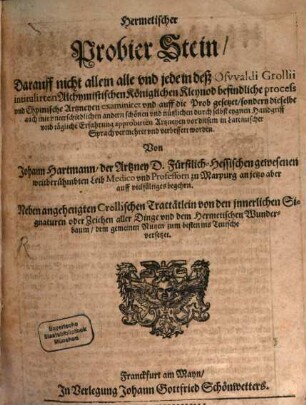 Hermetischer
Probier Stein/
Darauff nicht allein alle vnd jede in deß Osvvaldi Crollii
intitulirten Alchymistischen Königlichen Kleynod befindliche process
vnd Chymische Artzneyen examiniret vnd auff die Prob gesetzet/ sondern dieselbe
auch mit vnterschiedlichen andern schönen vnd nützlichen durch selbst eygnen Handgriff
vnd tägliche Erfahrung approbirten Artzneyen vor diesem in Lateinischer
Sprach vermehret vnd verbessert worden.
Von
Johann Hartmann/ der Artzney D. Fürstlich-Hessischen gewesenen
weitberühmbten Leib Medico vnd Professorn zu Marpurg an jetzo aber
auff vielfältiges begehren.
Neben angehengten Crollischen Tractätlein von den jnnerlichen Si-
gnaturen oder Zeichen aller Dinge vnd dem Hermetischen Wunder-
baum/ dem gemeinen Nutzen zum besten ins Teutsche
versetzet.
Bayerische
Staatsbibliothek
München
Franckfurt am Mayn/
In Verlegung Johann Gottfried Schönwetters.